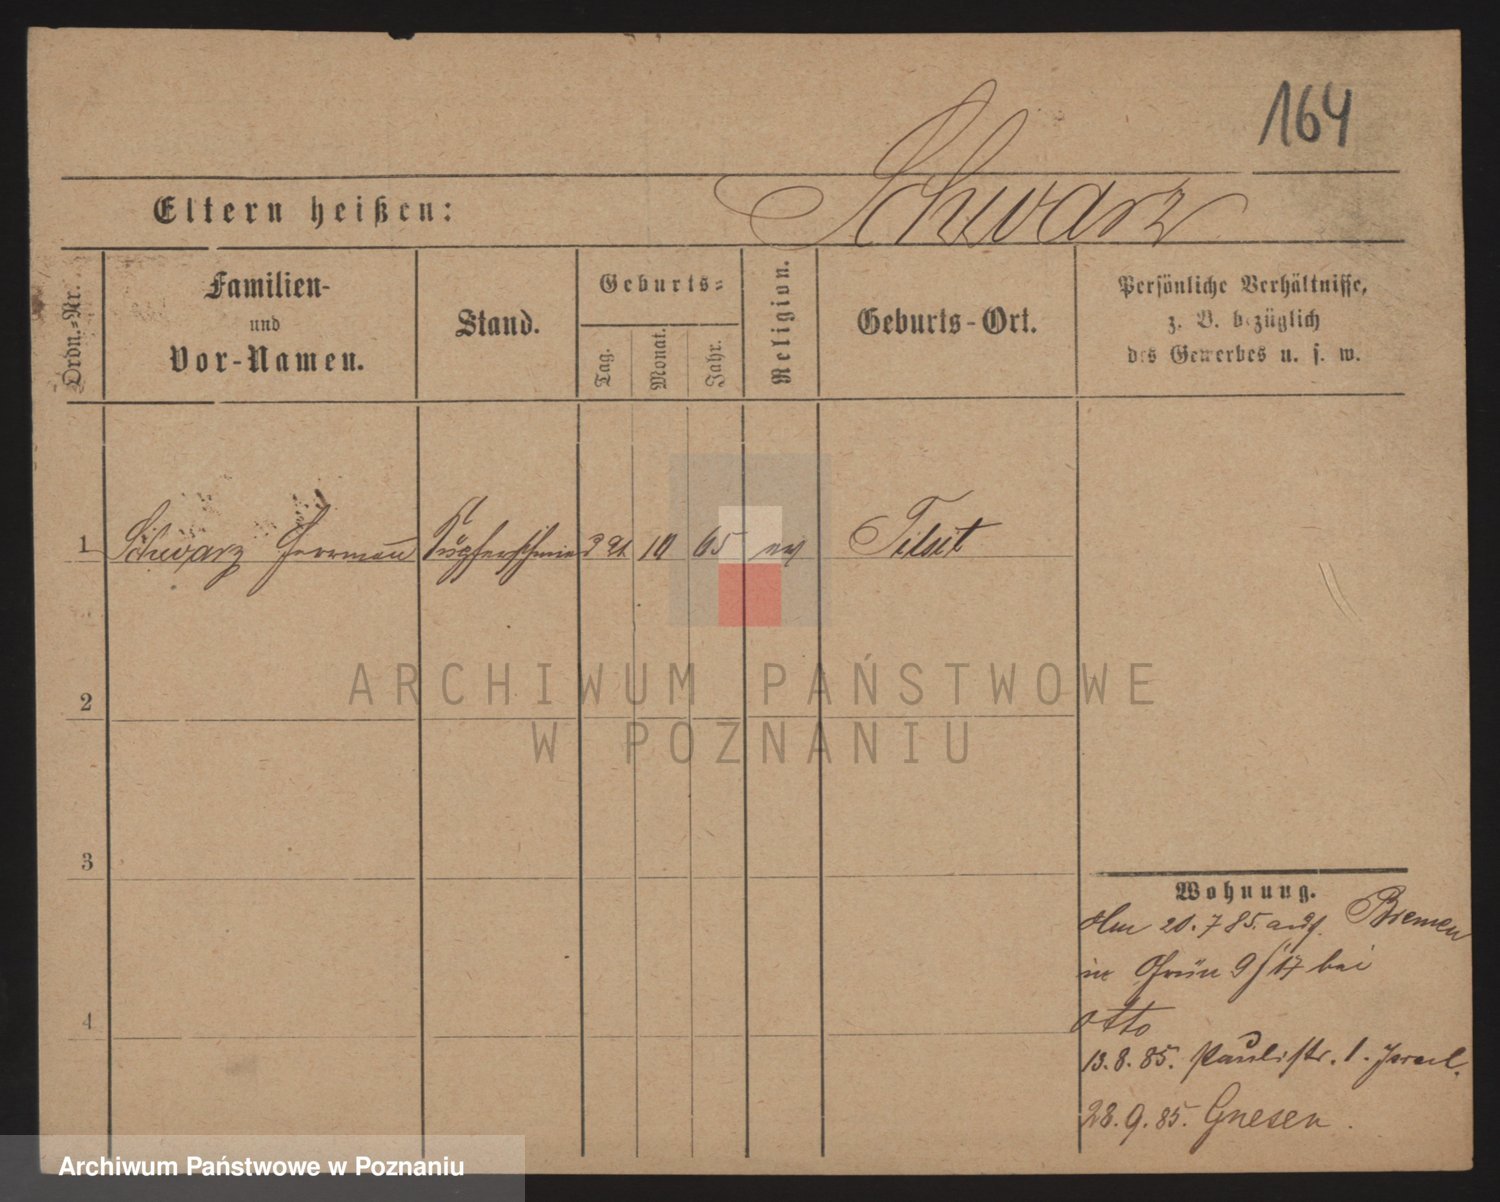 164
Eltern heißen: Schwarz
Ordn.-Nr.
Familien-
und
Vor-Namen.
Stand.
Geburts-
Tag.
Monat.
Jahr.
Religion.
Geburts-Ort.
Persönliche Verhältnisse,
z. B. bezüglich
des Gewerbes u. s. w.
1 Schwarz Herrmann Kupferschmied 21 10 65 ev Tilsit
2
3
4
Wohnung.
Am 20.7 85. aus Bremen
in Grün 9/17 bei
Otto
13.8.85. Paulistr. 1. Israel.
28.9.85. Gnesen.
ARCHIWUM PAŃSTWOWE
W POZNANIU
Archiwum Państwowe w Poznaniu